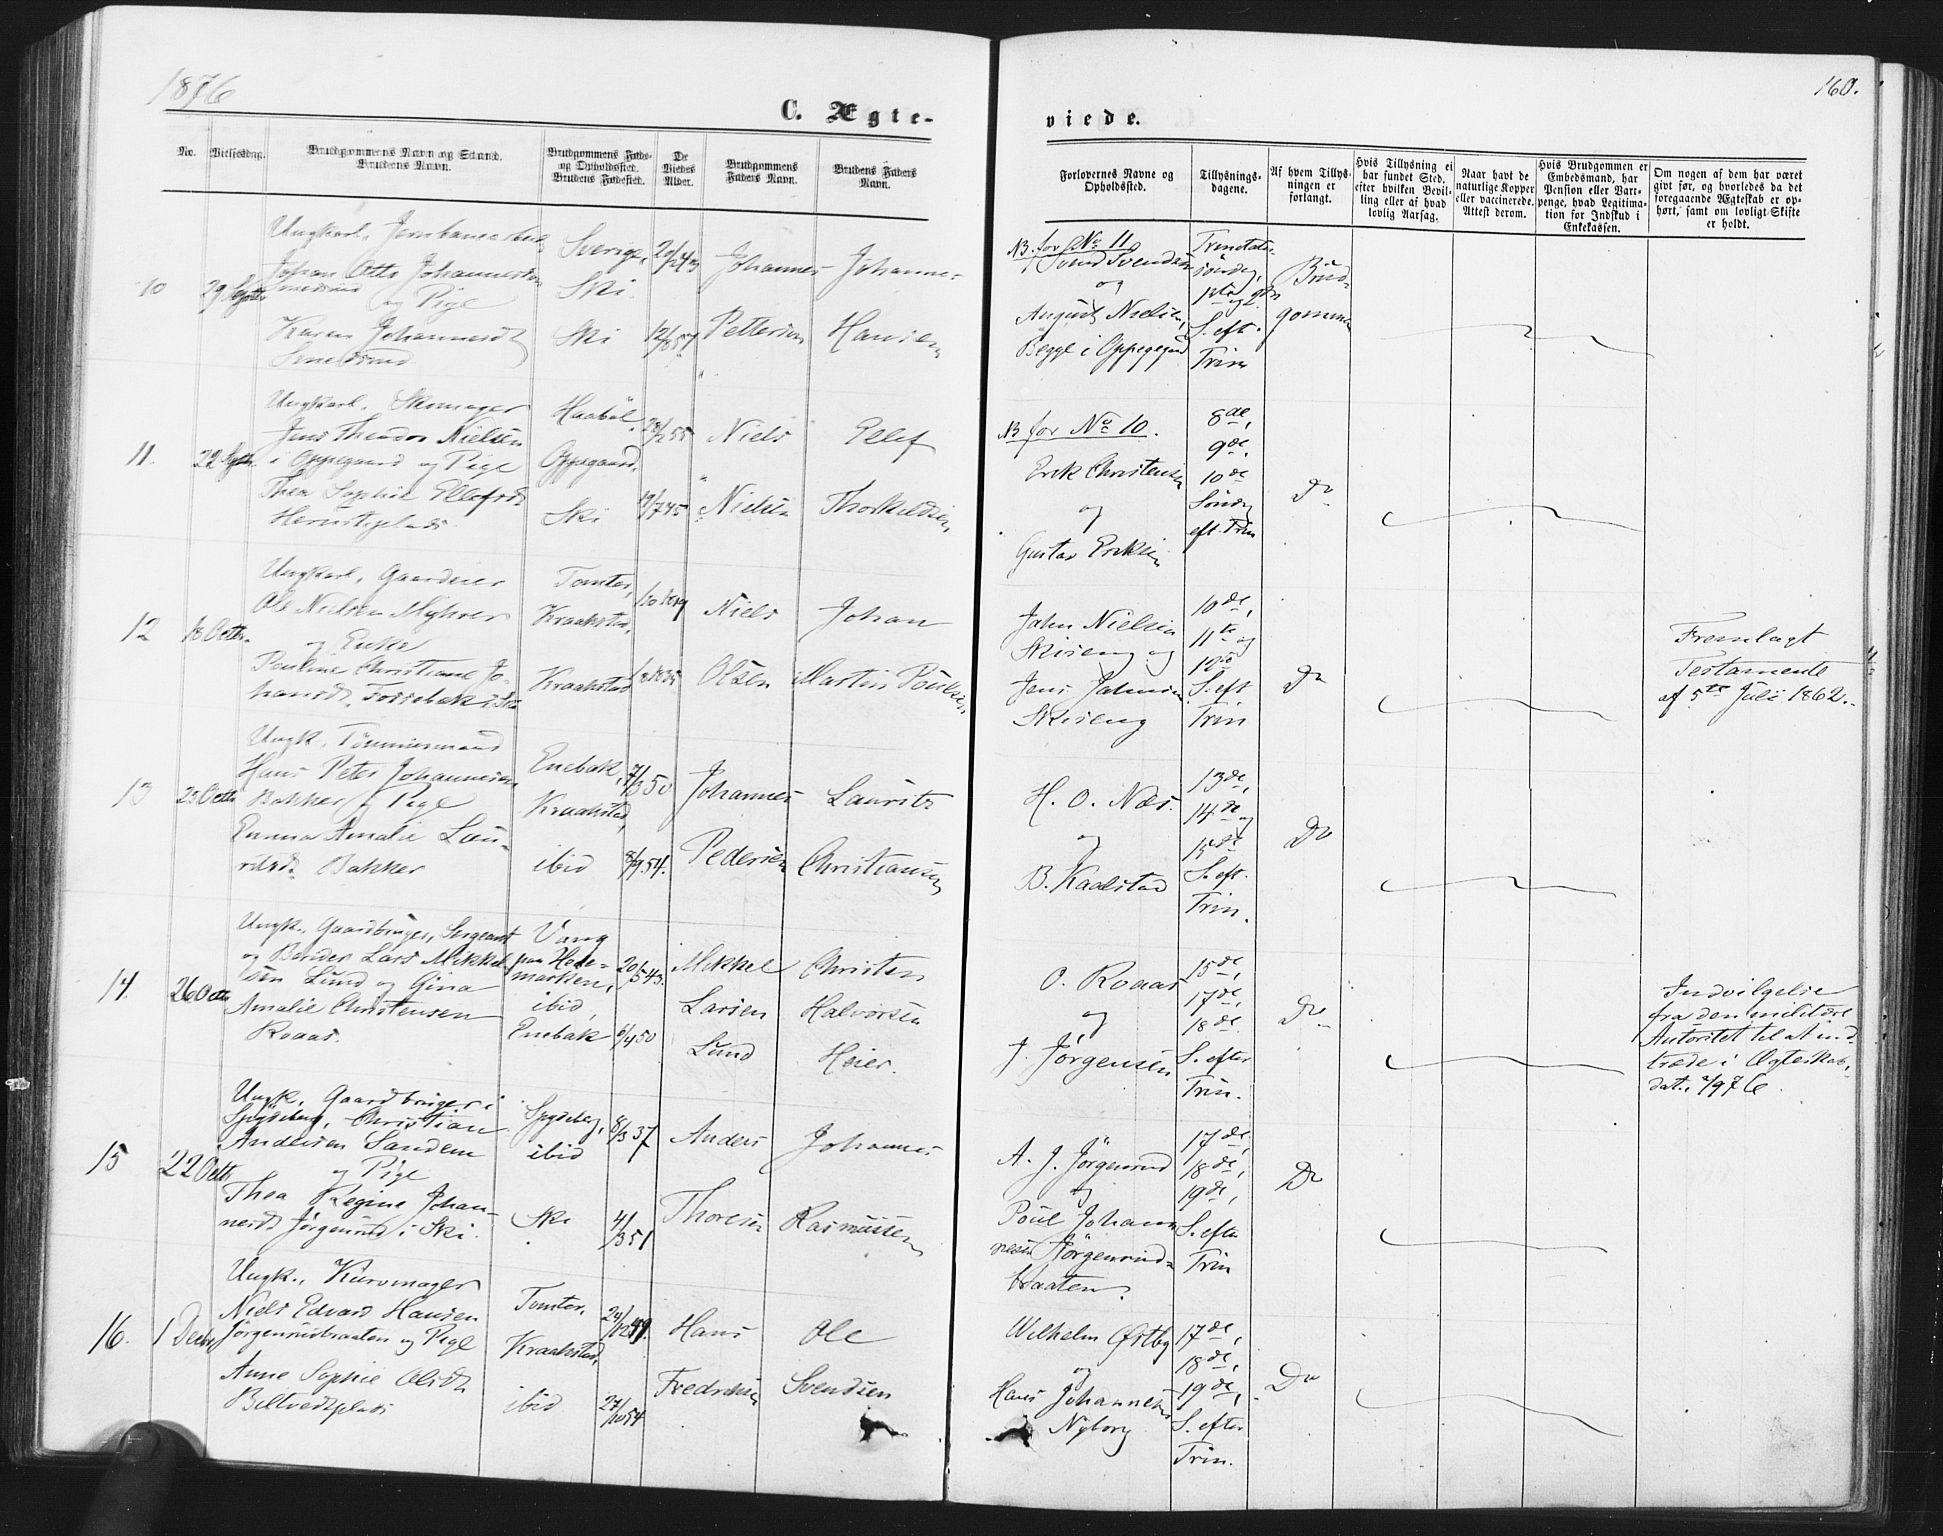 1876
160.
C. Ægte-
viede.
No.
Vielsesdag.
Brudgommens Navn og Stand.
Brudens Navn.
Brudgommens Føde-
og Opholdssted.
Brudens Fødested.
De
Viedes
Alder.
Brudgommens
Faders Navn.
Brudens Faders
Navn.
Forlovernes Navne og
Opholdssted.
Tillysnings-
dagene.
Af hvem Tillys-
ningen er
forlangt.
Hvis Tillysning ei
har fundet Sted,
efter hvilken Bevil-
ling eller af hvad
lovlig Aarsag.
Naar havt de
naturlige Kopper
eller vaccinerede.
Attest derom.
Hvis Brudgommen er
Embedsmand, har
Pension eller Vart-
penge, hvad Legitima-
tion for Indskud i
Enkekassen.
Om nogen af dem har været
gift før, og hvorledes da det
foregaaende Ægteskab er op-
hørt, samt om lovligt Skifte
er holdt.
10
29 Septbr
Ungkarl,
Johan Otto Johannesen
og Pige
Karen Johannesd.
Sverige,
Ski.
Ski
Johannes
Pettersen
Johannes
Hansen
NB. for No 11
Svend Svendsen
og
August Nielsen,
Begge i Oppegaard
Trinitatis
søndag,
1ste og 2den
S. eft.
Trin
Brud-
gommen
11.
22 Septbr.
Ungkarl, Skomager
Jens Theodor Nielsen
i Oppegaard og Pige
Thea Sophie Ellefsd.
Haabøl,
Oppegaard.
Ski
28/2 55
19/7 45
Niels
Nielsen
Ellef
Thorkildsen
NB for No 10.
Erik Christensen
og
Gustav Eriksen
8de,
9de,
10de
Søndag
eft. Trin
Do
12
18 Octbr.
Ungkarl, Gaardeier
Ole Nielsen Myhrer
og Enke
Pauline Christiane Jo-
hansd.
Tomter,
Kraakstad,
Kraakstad
Niels
Olsen
Johan
Martin Poulsen
John Nielsen
Skiseng og
Jens Johnsen
Skiseng
10de,
11te og
12te
S. eft
Trin
Do
Fremlagt
Testamente
af 5te Juli 1862.
13
23 Octbr
Ungk. Tømmermand
Hans Peter Johannesen
Bakker og Pige
Emma Amalie Lau-
ritzd. Bakker
Enebak,
Kraakstad,
ibid
7/3 50
8/9 54.
Johannes
Pedersen
Lauritz
Christiansen
H. O. Næs.
og
B. Kaalstad
13de,
14de og
15de
S. eft.
Trin.
Do
14.
26 Octbr
Ungk., Gaardbruger, Sergeant
og Lars Mikkel-
sen Lund og Gina
Amalie Christensen
Roaas.
Vang
paa Hede-
marken,
ibid,
Enebak
20/5 43.
6/4 50
Mikkel
Larsen
Lund
Christen
Halvorsen
Heier.
O. Roaas
og
J. Jørgensen
15de,
17de,
18de.
S. efter
Trin.
Do
Indvilgelse
fra den militære
Autoritet til at ind-
træde i Ægteskab,
dat. 2/9 76.
15
22 Octbr
Ungk. Gaardbruger i
Spydeberg, Christian
Andersen Sandem
og Pige
Thea Regine Johan-
nesd. Jørgenrud i Ski.
Spydeberg,
ibid
Ski
8/3 37
4/3 51
Anders
Thoresen
Johannes
Rasmussen
A. J. Jørgenrud
og
Poul Johan-
nesen Jørgenrud-
braaten.
17de,
18de,
19de,
S. efter
Trin
Do
16.
1 Decbr
Ungk., Kurvmager
Niels Edvard Hansen
Jørgenrudbraaten og Pige
Anne Sophie Olsd.
Beltvedtplads
Tomter,
Kraakstad,
ibid
29/12 49.
27/10 54
Hans
Fredriksen
Ole
Svendsen
Wilhelm Østby
og
Hans Johannesen
Nyborg
17de,
18de,
19de,
S. efter
Trin.
Do